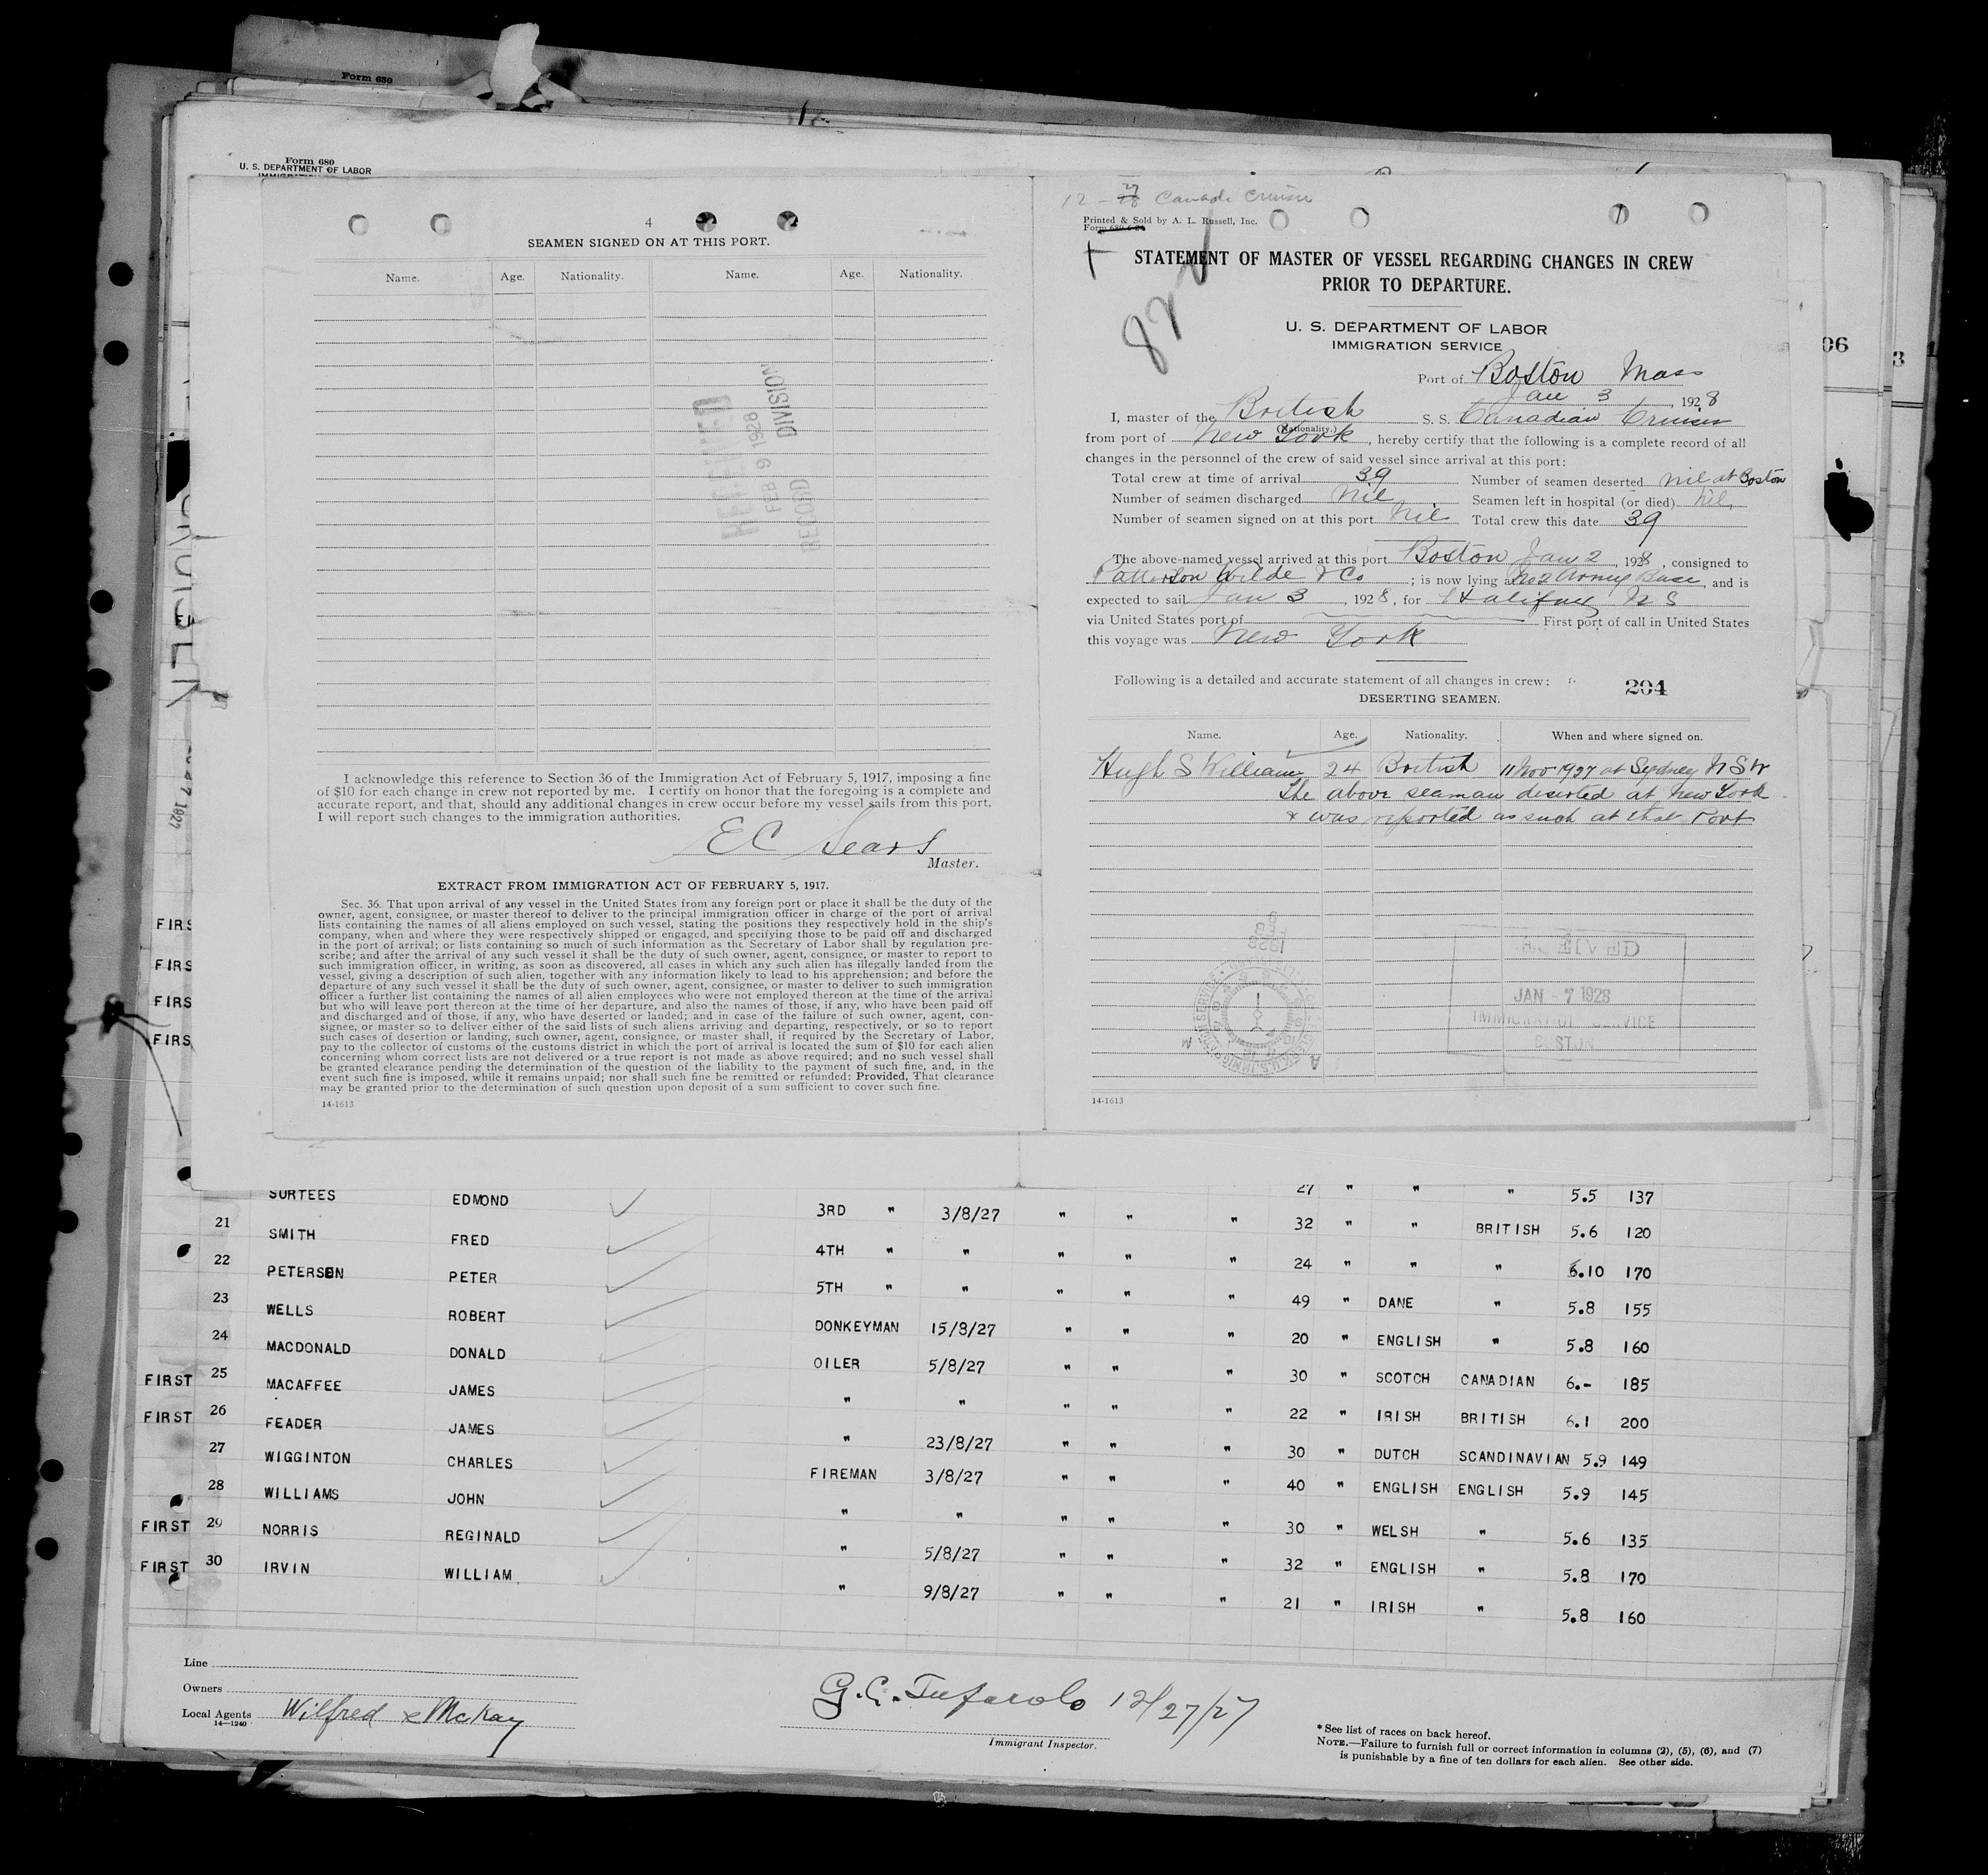 Form 630
Form 680
U. S. DEPARTMENT OF LABOR
4
SEAMEN SIGNED ON AT THIS PORT.
Name. Age. Nationality. Name. Age. Nationality.
RECEIVED
FEB 9 1928
RECORD DIVISION
I acknowledge this reference to Section 36 of the Immigration Act of February 5, 1917, imposing a fine
of $10 for each change in crew not reported by me. I certify on honor that the foregoing is a complete and
accurate report, and that, should any additional changes in crew occur before my vessel sails from this port,
I will report such changes to the immigration authorities.
E C Sears
Master.
EXTRACT FROM IMMIGRATION ACT OF FEBRUARY 5, 1917.
Sec. 36. That upon arrival of any vessel in the United States from any foreign port or place it shall be the duty of the
owner, agent, consignee, or master thereof to deliver to the principal immigration officer in charge of the port of arrival
lists containing the names of all aliens employed on such vessel, stating the positions they respectively hold in the ship's
company, when and where they were respectively shipped or engaged, and specifying those to be paid off and discharged
in the port of arrival; or lists containing so much of such information as the Secretary of Labor shall by regulation pre-
scribe; and after the arrival of any such vessel it shall be the duty of such owner, agent, consignee, or master to report to
such immigration officer, in writing, as soon as discovered, all cases in which any such alien has illegally landed from the
vessel, giving a description of such alien, together with any information likely to lead to his apprehension; and before the
departure of any such vessel it shall be the duty of such owner, agent, consignee, or master to deliver to such immigration
officer a further list containing the names of all alien employees who were not employed thereon at the time of the arrival
but who will leave port thereon at the time of her departure, and also the names of those, if any, who have been paid off
and discharged and of those, if any, who have deserted or landed; and in case of the failure of such owner, agent, con-
signee, or master so to deliver either of the said lists of such aliens arriving and departing, respectively, or so to report
such cases of desertion or landing, such owner, agent, consignee, or master shall, if required by the Secretary of Labor,
pay to the collector of customs of the customs district in which the port of arrival is located the sum of $10 for each alien
concerning whom correct lists are not delivered or a true report is not made as above required; and no such vessel shall
be granted clearance pending the determination of the question of the liability to the payment of such fine, and, in the
event such fine is imposed, while it remains unpaid; nor shall such fine be remitted or refunded: Provided, That clearance
may be granted prior to the determination of such question upon deposit of a sum sufficient to cover such fine.
14-1613
Canada Cruiser
Printed & Sold by A. L. Russell, Inc.
822
STATEMENT OF MASTER OF VESSEL REGARDING CHANGES IN CREW
PRIOR TO DEPARTURE.
U. S. DEPARTMENT OF LABOR
IMMIGRATION SERVICE
Port of Boston Mass
Jan 3, 1928
I, master of the British S. S. Canadian Cruiser
(Nationality.)
from port of New York, hereby certify that the following is a complete record of all
changes in the personnel of the crew of said vessel since arrival at this port:
Total crew at time of arrival 39 Number of seamen deserted nil at Boston
Number of seamen discharged nil Seamen left in hospital (or died) nil
Number of seamen signed on at this port nil Total crew this date 39
The above-named vessel arrived at this port Boston Jan 2, 1928, consigned to
Patterson Wilde & Co; is now lying at No 2 Army Base, and is
expected to sail Jan 3, 1928, for Halifax N S
via United States port of First port of call in United States
this voyage was New York
Following is a detailed and accurate statement of all changes in crew:
204
DESERTING SEAMEN.
Name. Age. Nationality. When and where signed on.
Hugh S Williams 24 British 11 Nov 1927 at Sydney N S W
The above seaman deserted at New York
& was reported as such at that Port
JAN - 7 1928
IMMIGRATION SERVICE
BOSTON
14-1613
06
3
FIRS
FIRS
FIRS
FIRS
SURTEES EDMOND 3RD " 3/8/27 " " " 27 " " " 5.5 137
21 SMITH FRED 4TH " " " " " 32 " " BRITISH 5.6 120
22 PETERSEN PETER 5TH " " " " " 24 " " " 6.10 170
23 WELLS ROBERT DONKEYMAN 15/8/27 " " " 49 " DANE " 5.8 155
24 MACDONALD DONALD OILER 5/8/27 " " " 20 " ENGLISH " 5.8 160
FIRST 25 MACAFFEE JAMES " " " " " 30 " SCOTCH CANADIAN 6.- 185
FIRST 26 FEADER JAMES " 23/8/27 " " " 22 " IRISH BRITISH 6.1 200
27 WIGGINTON CHARLES FIREMAN 3/8/27 " " " 30 " DUTCH SCANDINAVIAN 5.9 149
28 WILLIAMS JOHN " " " " " 40 " ENGLISH ENGLISH 5.9 145
FIRST 29 NORRIS REGINALD " 5/8/27 " " " 30 " WELSH " 5.6 135
FIRST 30 IRVIN WILLIAM " 9/8/27 " " " 32 " ENGLISH " 5.8 170
21 " IRISH " 5.8 160
Line
Owners
Local Agents Wilfred & McKay
14—1240
G. C. Tufarolo 12/27/27
Immigrant Inspector.
*See list of races on back hereof.
NOTE.—Failure to furnish full or correct information in columns (2), (5), (6), and (7)
is punishable by a fine of ten dollars for each alien. See other side.